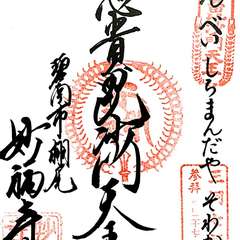 んべいしらまんだや そわか
志貴毘沙門天王
碧南市棚尾
妙福寺
参拝